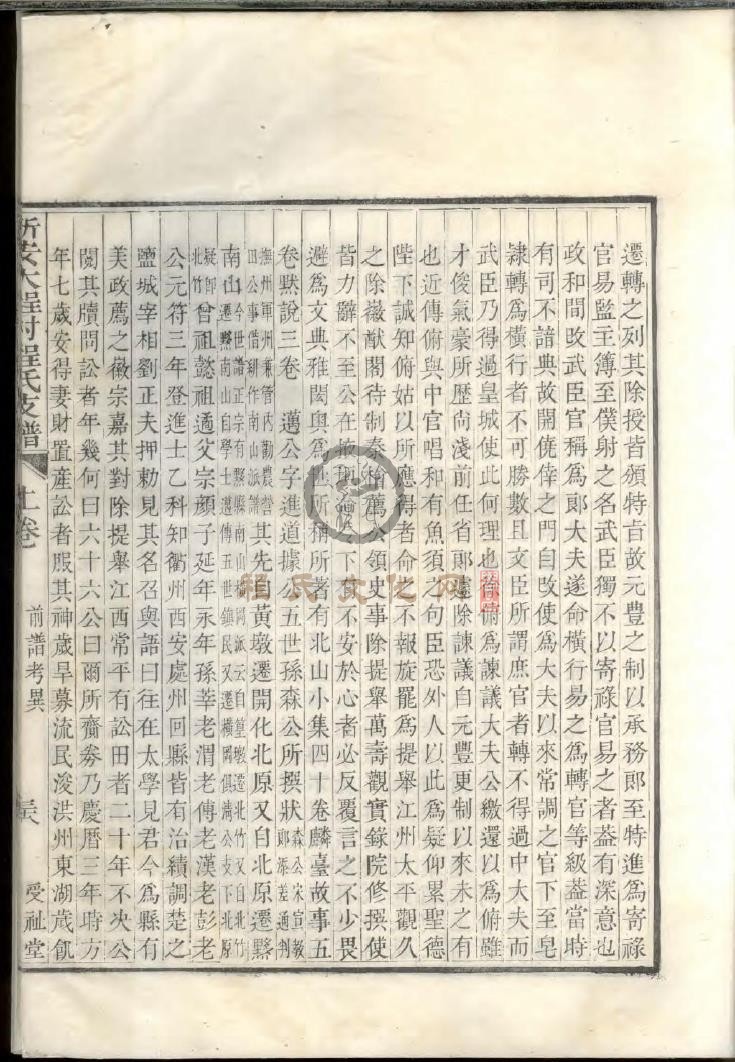 遷轉之列其除授皆頒特旨故元豐之制以承務郎至特進爲寄祿
官易監主簿至僕射之名武臣獨不以寄祿官易之者葢有深意也
政和間改武臣官稱爲郎大夫遂命橫行易之爲轉官等級葢當時
有司不諳典故開僥倖之門自改使爲大夫以來常調之官下至皂
隸轉爲橫行者不可勝數且文臣所謂庶官者轉不得過中大夫而
武臣乃得過皇城使此何理也徐俯爲諫議大夫公繳還以爲俯雖
才俊氣豪所歷尙淺前任省郎遽除諫議自元豐更制以來未之有
也近傳俯與中官唱和有魚須之句臣恐外人以此爲疑仰累聖德
陛下誠知俯姑以所應得者命之不報旋罷爲提舉江州太平觀久
之除徽猷閣待制秦檜薦公領史事除提舉萬壽觀實錄院修撰使
皆力辭不至公在掖垣下不安於心者必反覆言之不少畏
避爲文典雅閎輿爲世所稱所著有北山小集四十卷麟臺故事五
卷默說三卷 邁公字進道據公五世孫森公所撰狀森公宋宣教郎添差通判
撫州軍州兼管內勸農營田公事借緋作南山派譜其先自黃墩遷開化北原又自北原遷黟
南山
曾祖懿祖適父宗顏子延年永年孫莘老渭老傳老漢老彭老
公元符三年登進士乙科知衢州西安處州回縣皆有治績調楚之
鹽城宰相劉正夫押勅見其名召與語曰往在太學見君今爲縣有
美政薦之徽宗嘉其對除提舉江西常平有訟田者二十年不決公
閱其牘問訟者年幾何曰六十六公曰爾所齎劵乃慶曆三年時方
年七歲安得妻財置産訟者服其神歲旱募流民浚洪州東湖歲飢
新安大程村程氏支譜
上卷
前譜考異
受祉堂
程氏文化网